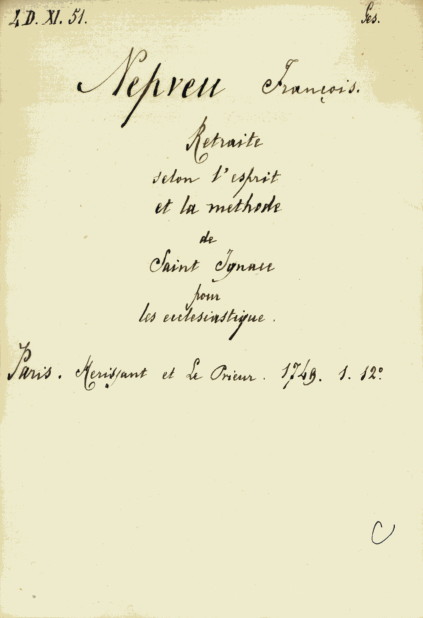 2 D. XI. 51.
Ges.
Nepveu François.
Retraite
selon l'esprit
et la méthode
de
Saint Ignace
pour
les ecclésiastique.
Paris. Merissant et Le Prieur. 1749. 1. 12°
C